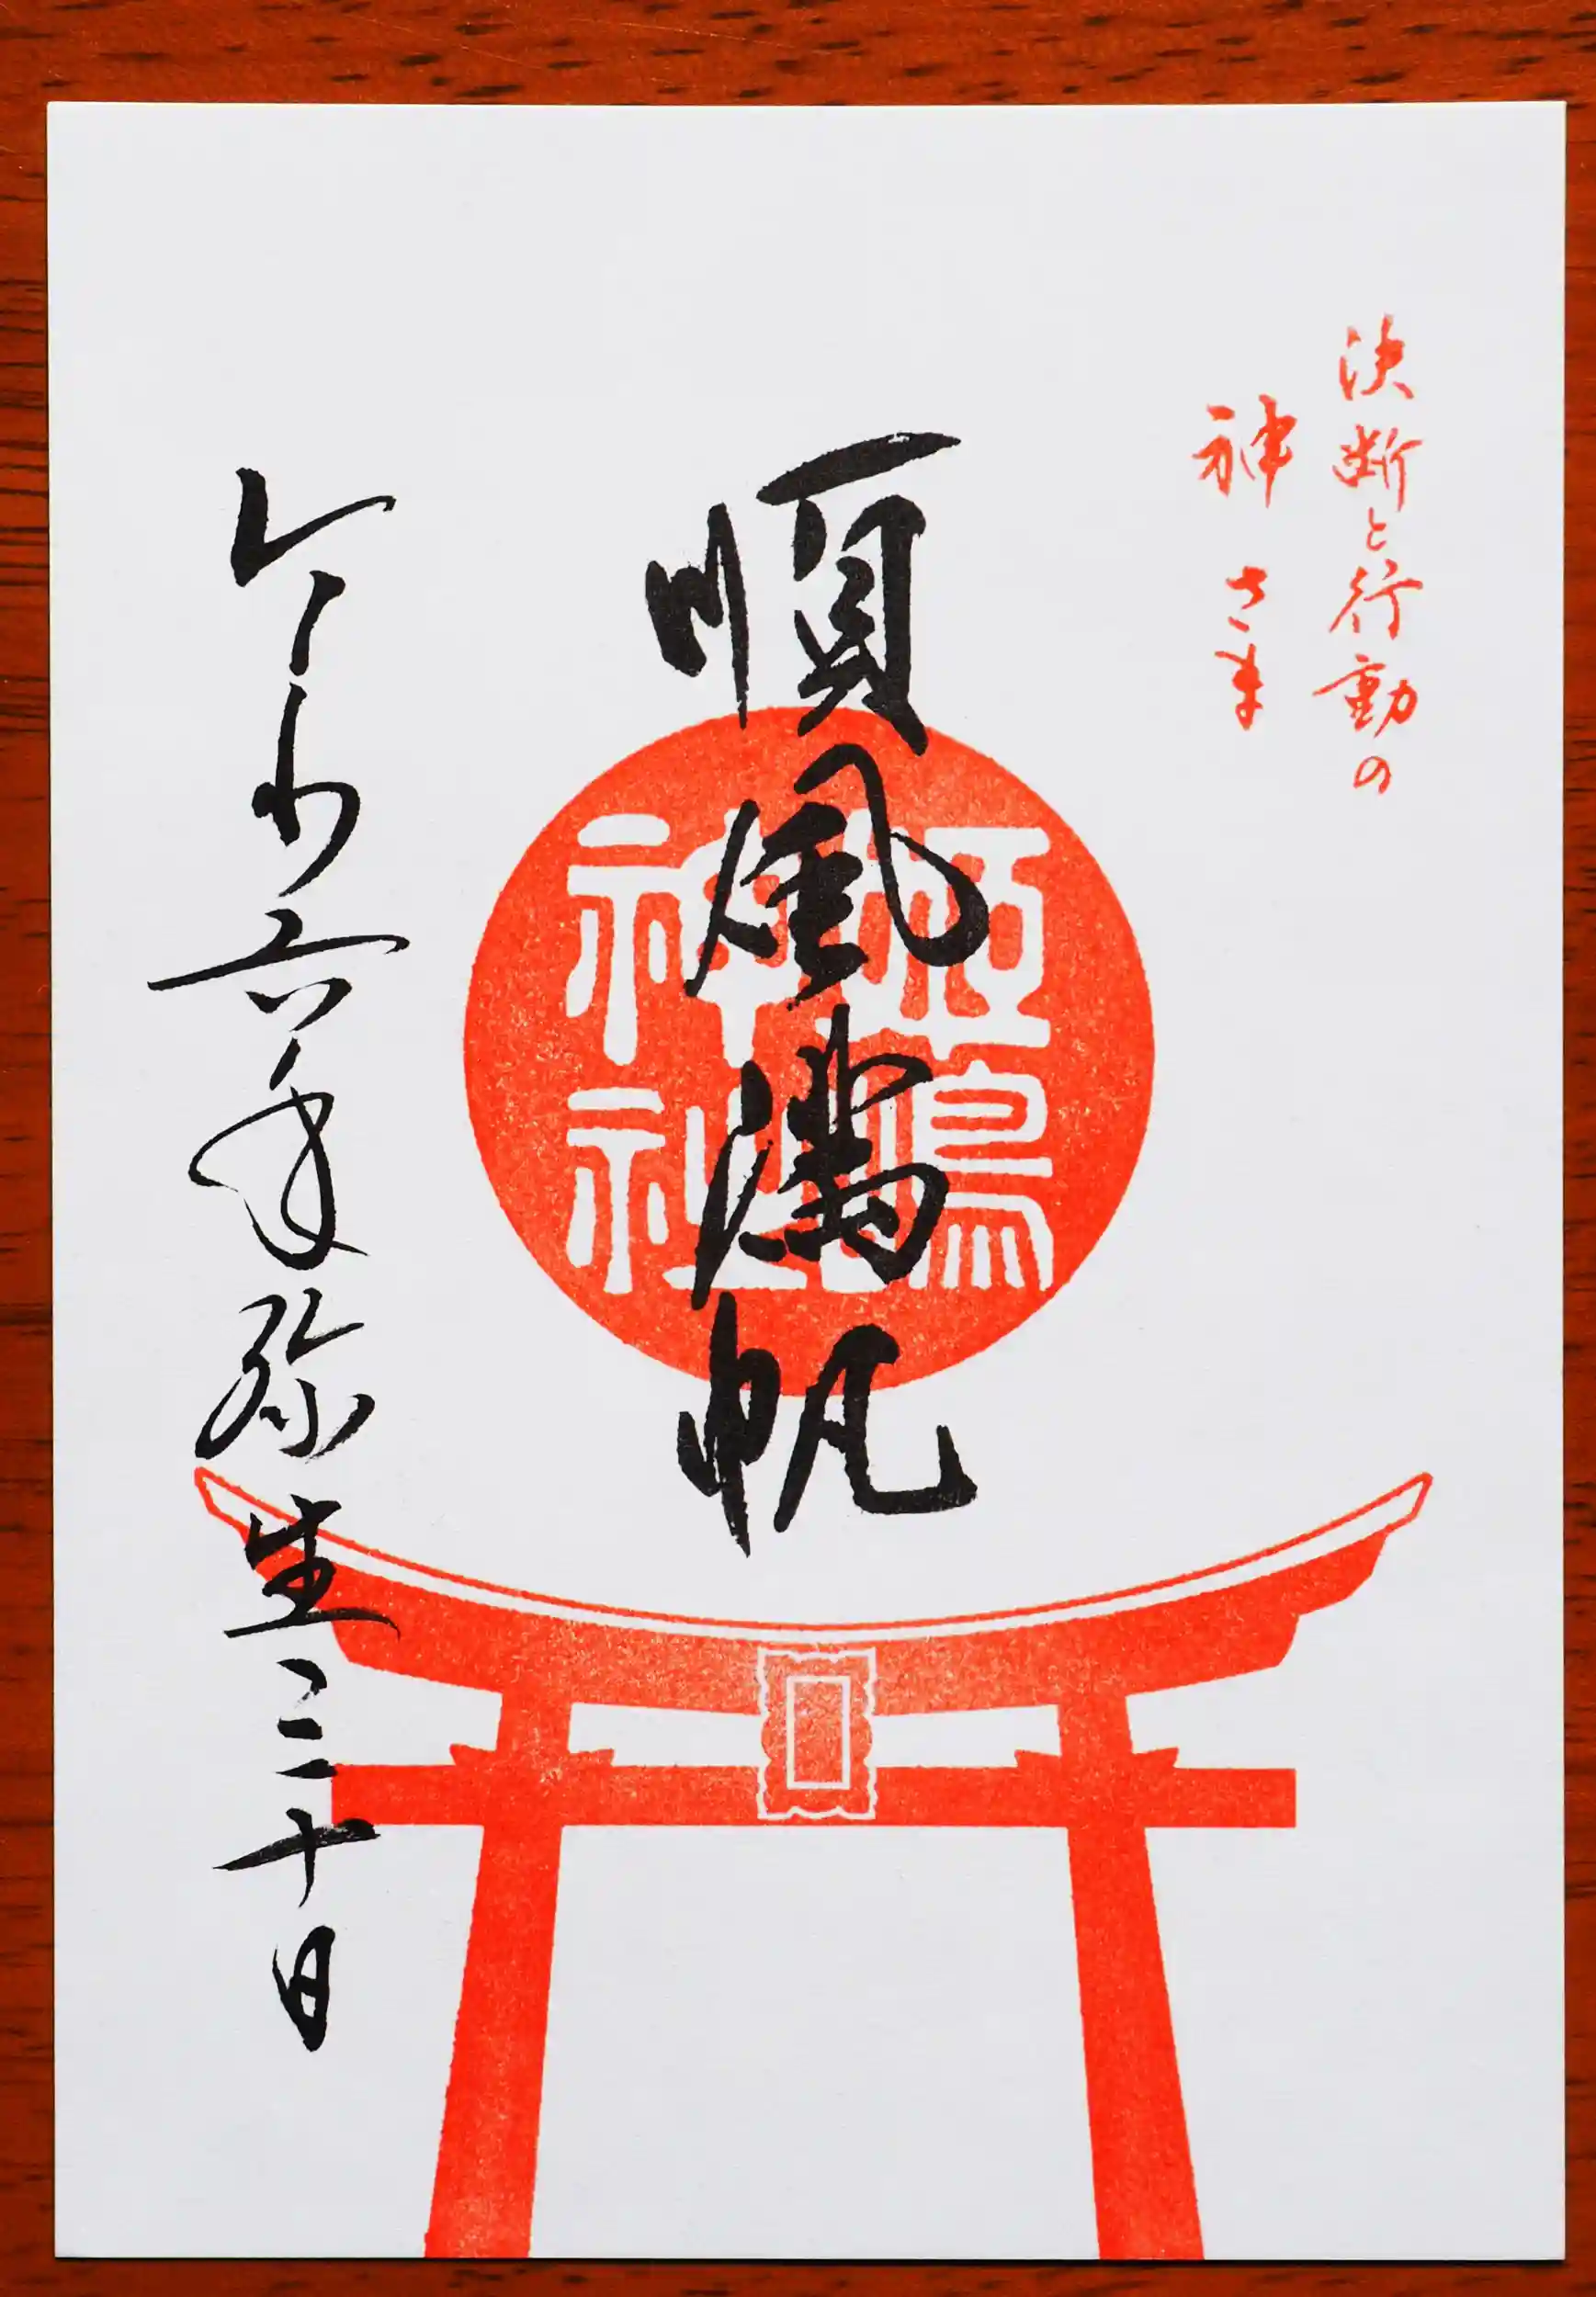 決断と行動の
神さま
順風満帆
神社
令和六年弥生三十日